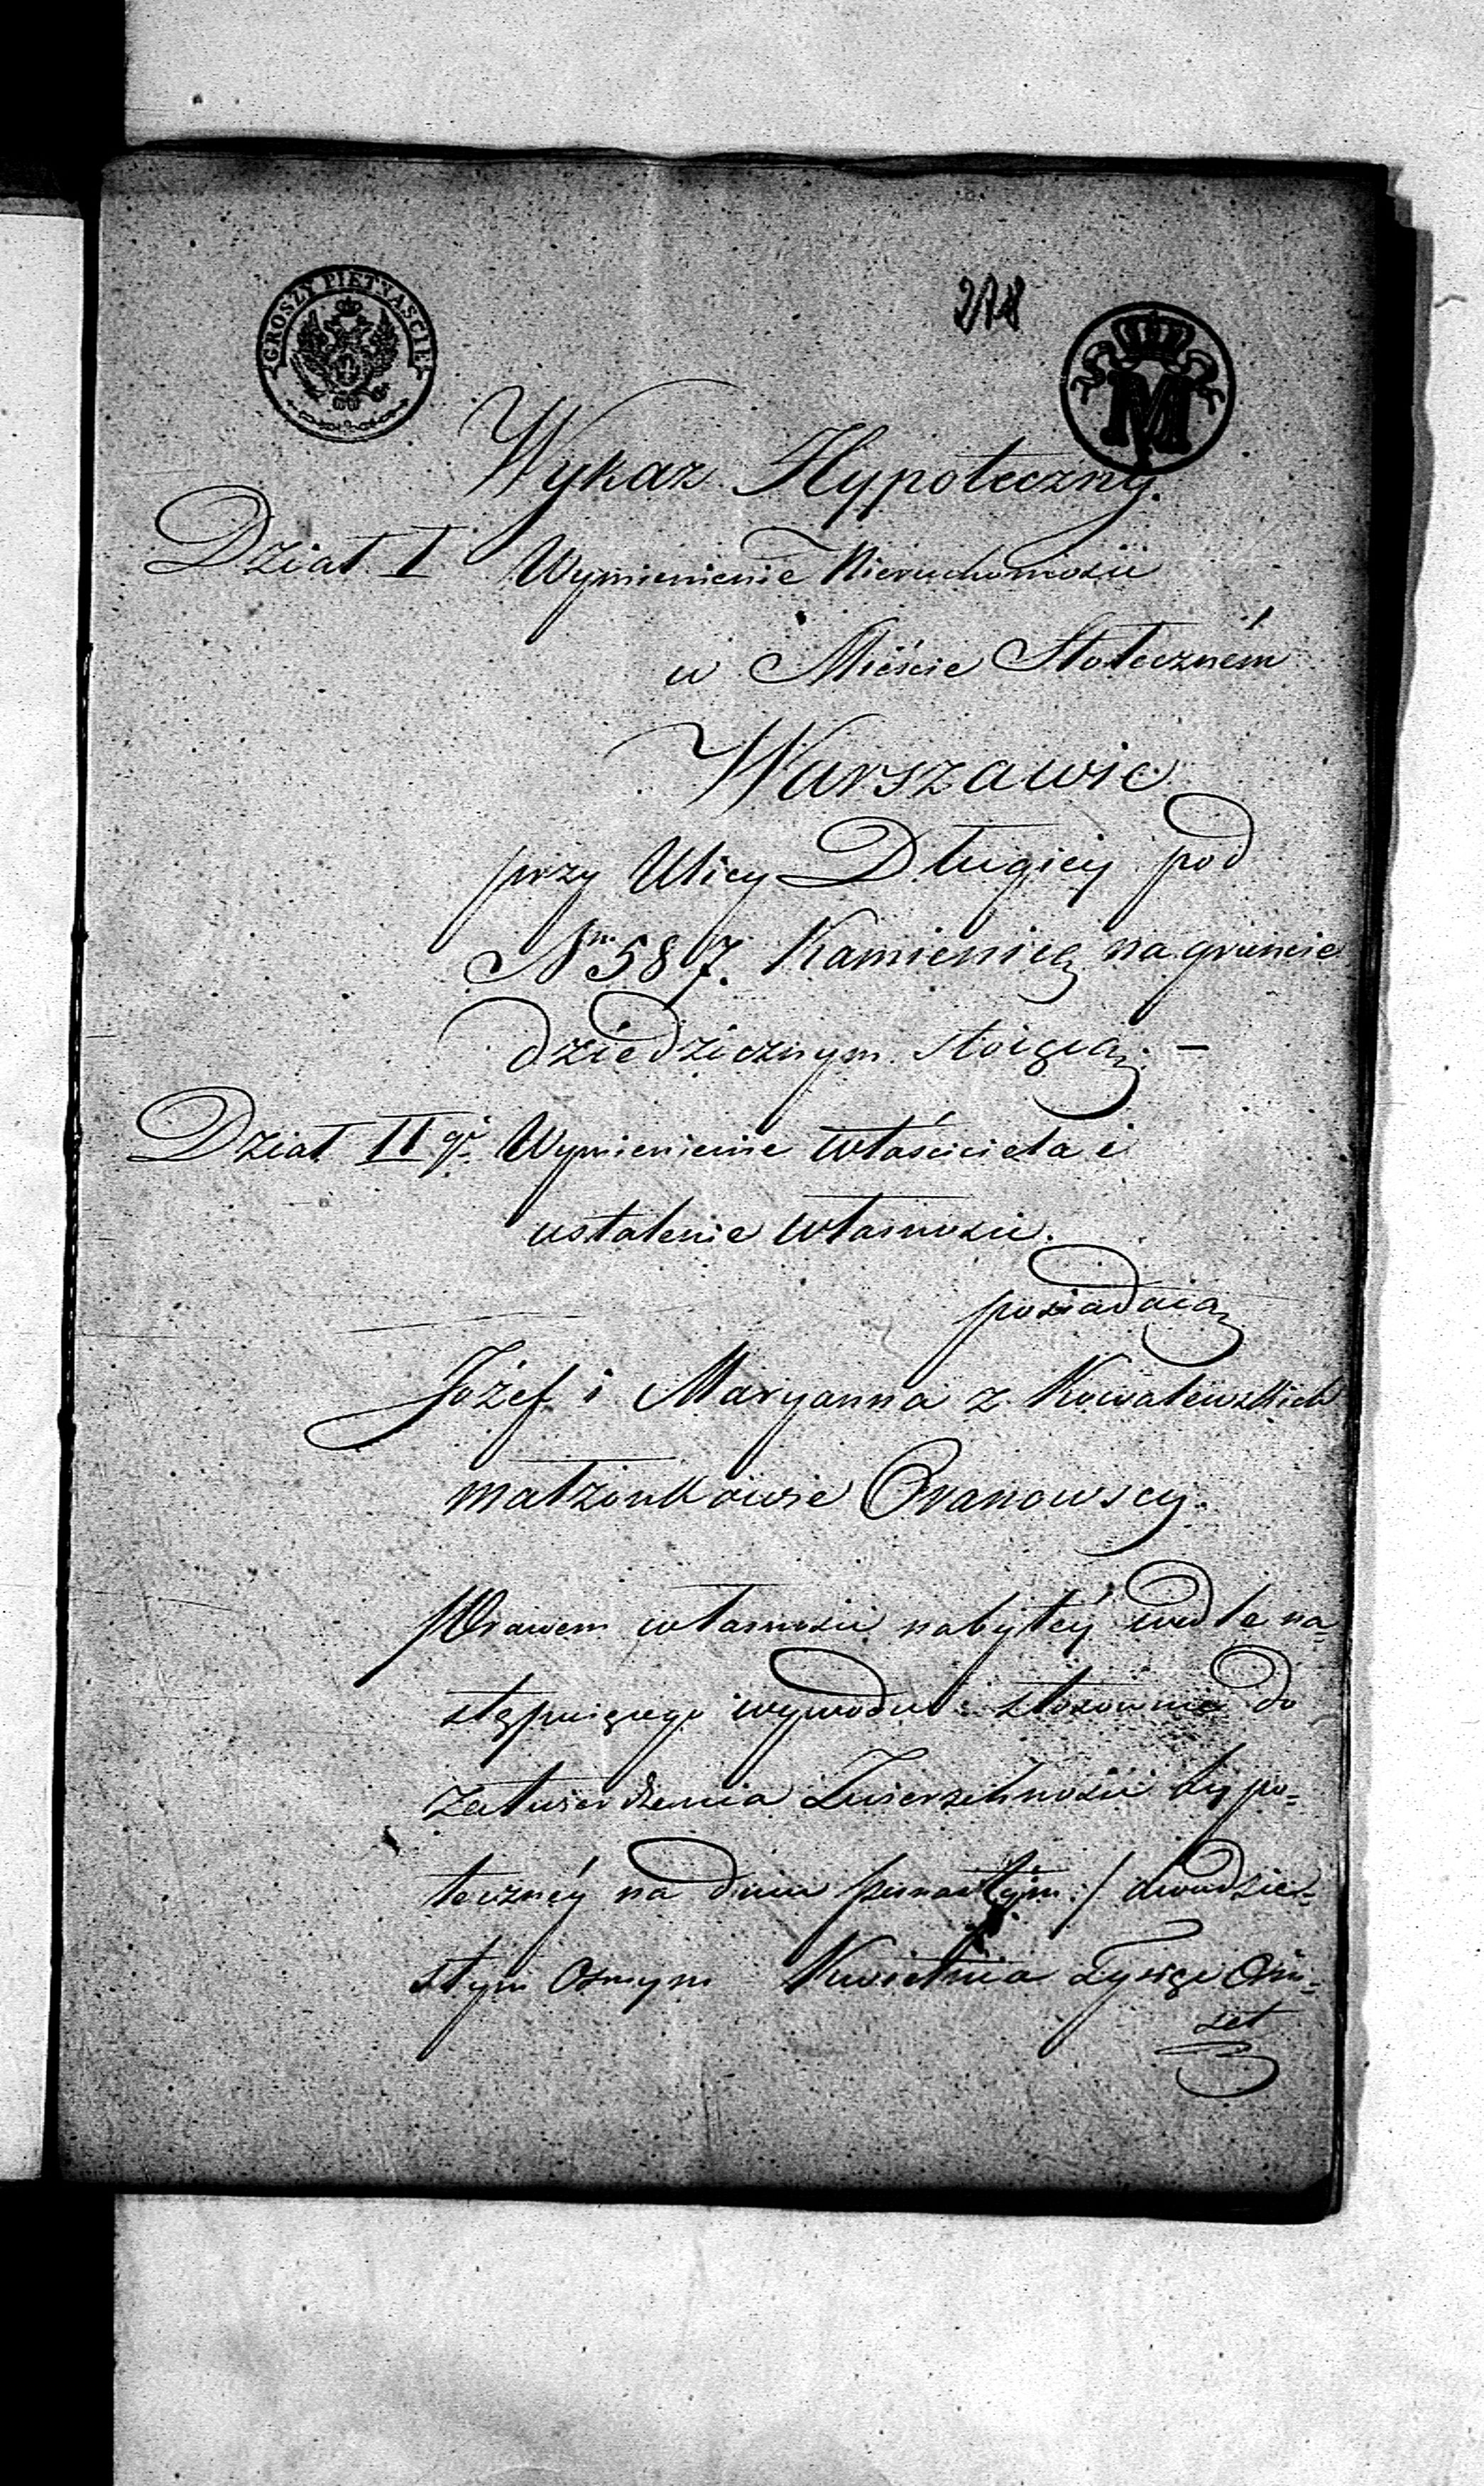 GROSZY PIĘTNAŚCIE
218
M
Wykaz Hypoteczny.
Dział I Wymienienie Nieruchomości
w Mieście Stołeczném
Warszawie
przy Ulicy Długiey pod
Nr 587. Kamienicą na gruncie
dziedzicznym stoiącą. —
Dział II gi Wymienienie właściciela i
ustalenie własności.
posiadaią
Józef i Maryanna z Kowalewskich
małżonkowie
Prawem własności nabytéy wedle na=
stępuiącego wywodu i stosownie do
zatwierdzenia Zwierzchności hypo=
tecznéy na dniu :/ dwudzie=
stym osmym Kwietnia Tysiąc Ośm=
set